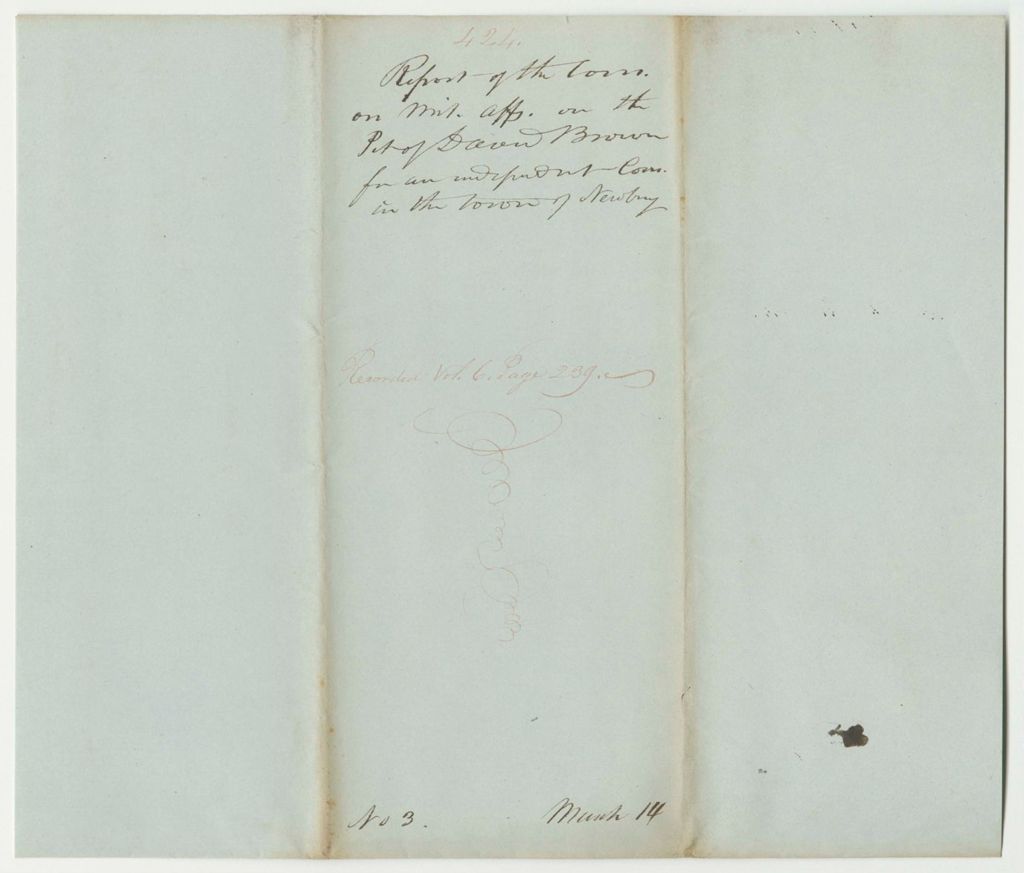 424.
Report of the Com.
on Mil. Affs. on the
Pet of David Brown
for an independent Com.
in the town of Newbury
Recorded Vol. 6. Page 239.
No 3.
March 14